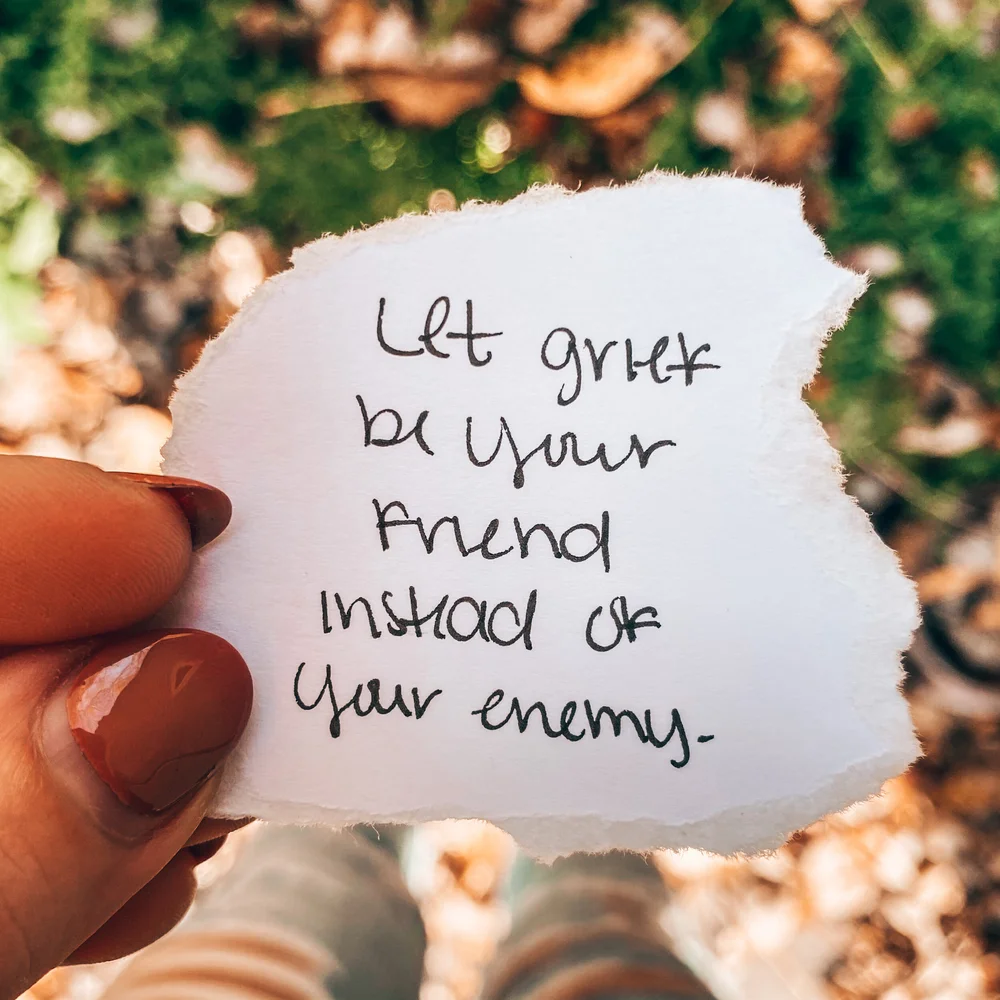 Let grief
be your
friend
instead of
your enemy.